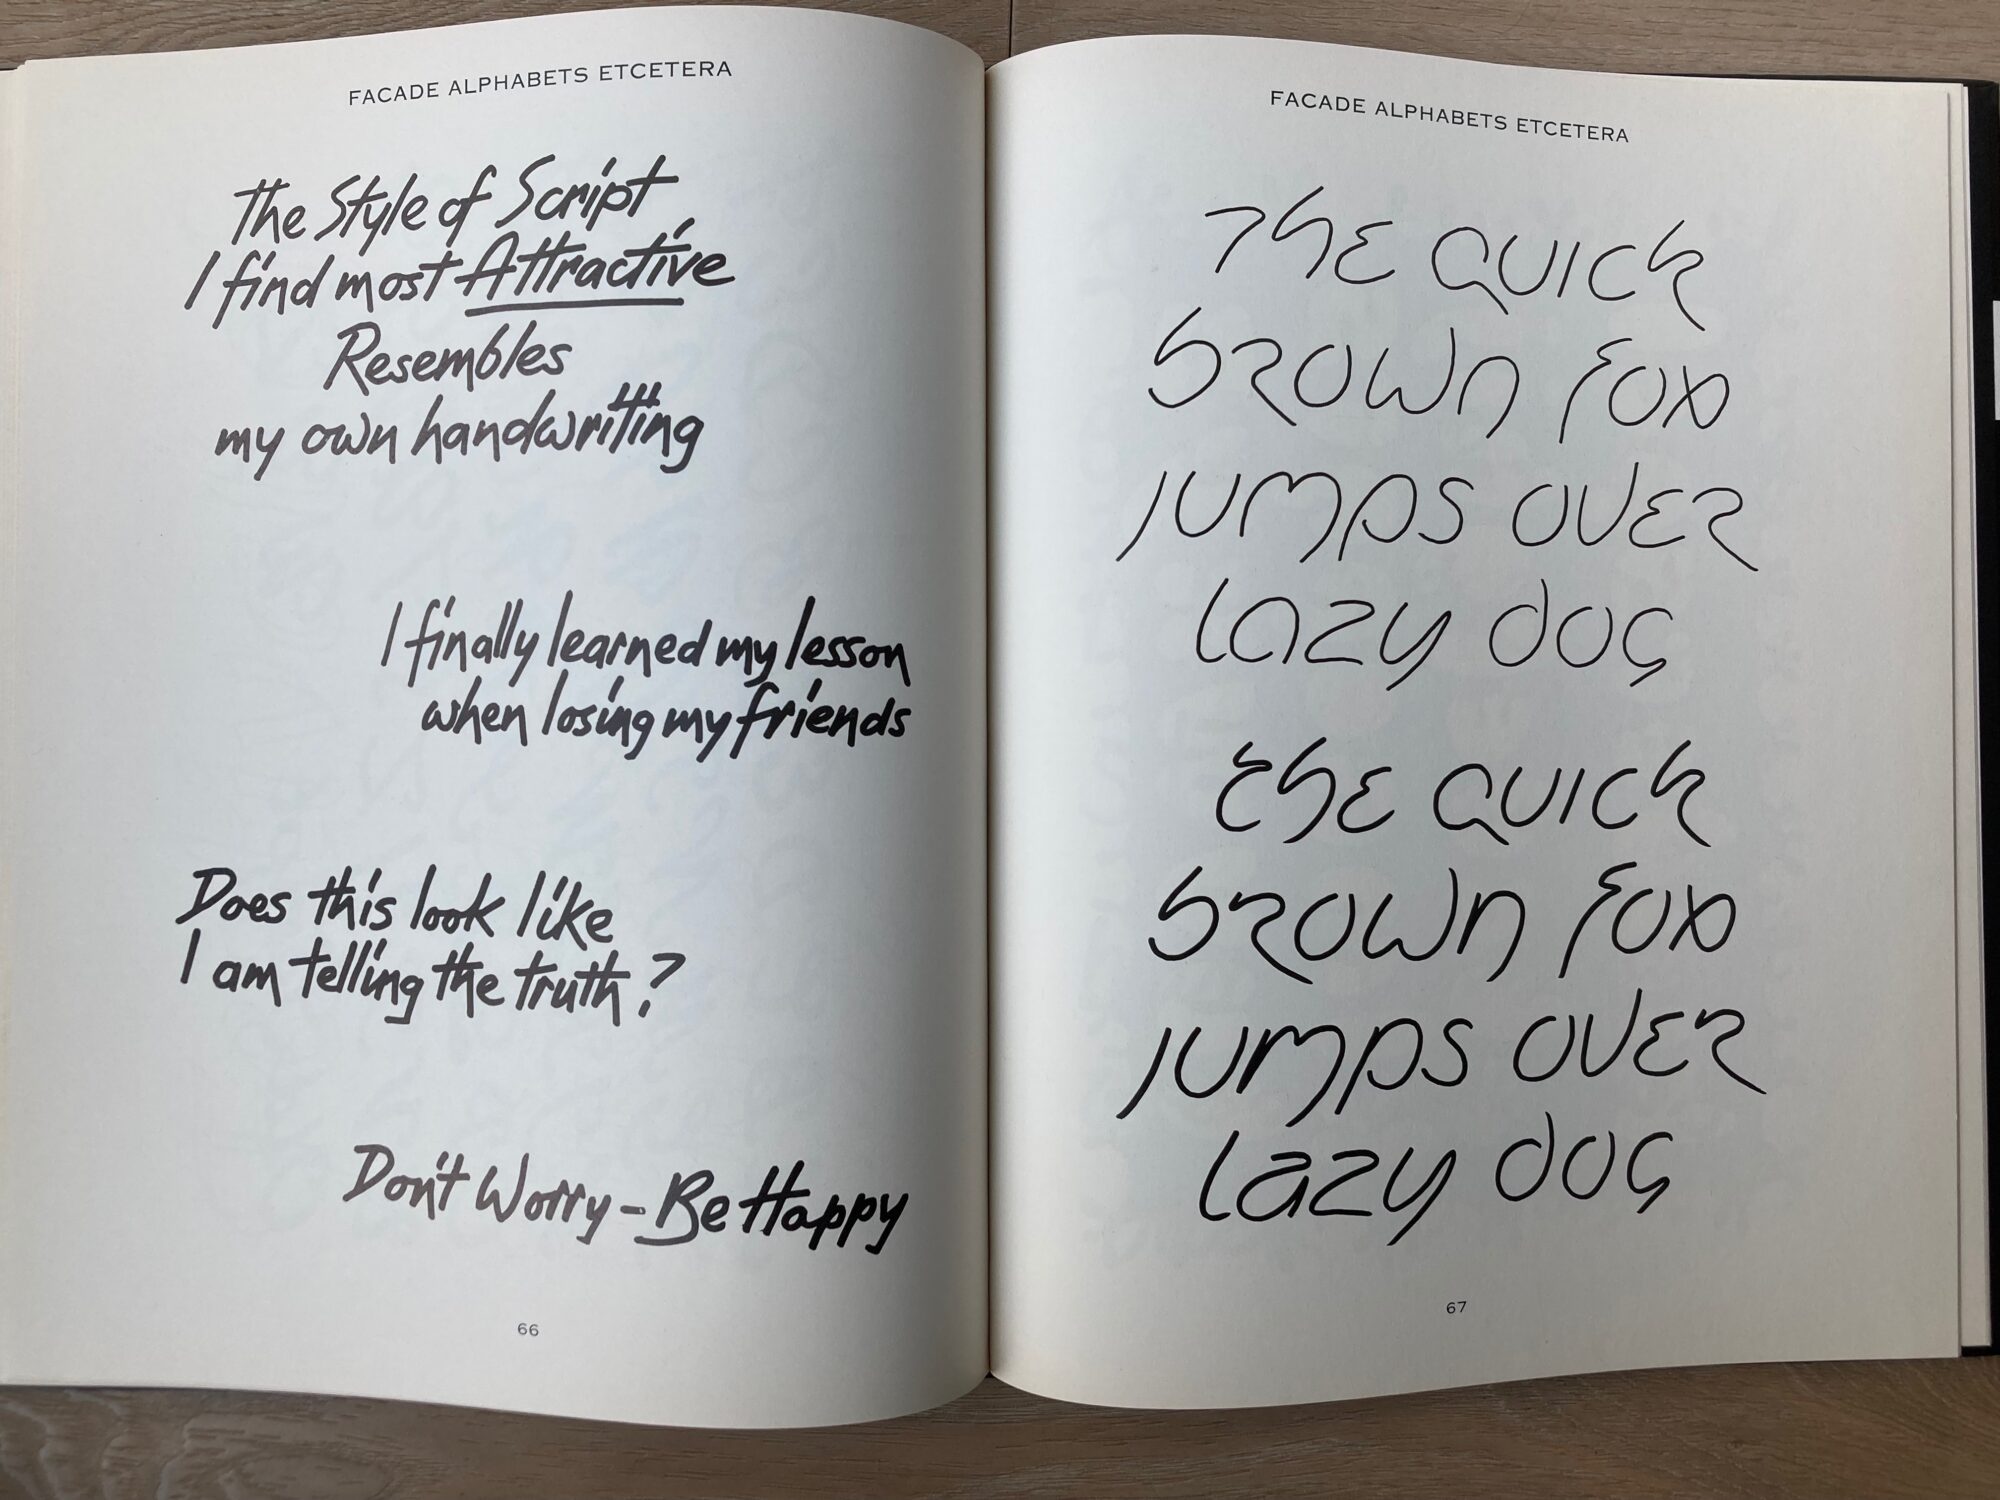 FACADE ALPHABETS ETCETERA
The Style of Script
I find most Attractive
Resembles
my own handwriting
I finally learned my lesson
when losing my friends
Does this look like
I am telling the truth?
Don't Worry - Be Happy
66
FACADE ALPHABETS ETCETERA
The quick
brown fox
jumps over
lazy dog
the quick
brown fox
jumps over
lazy dog
67